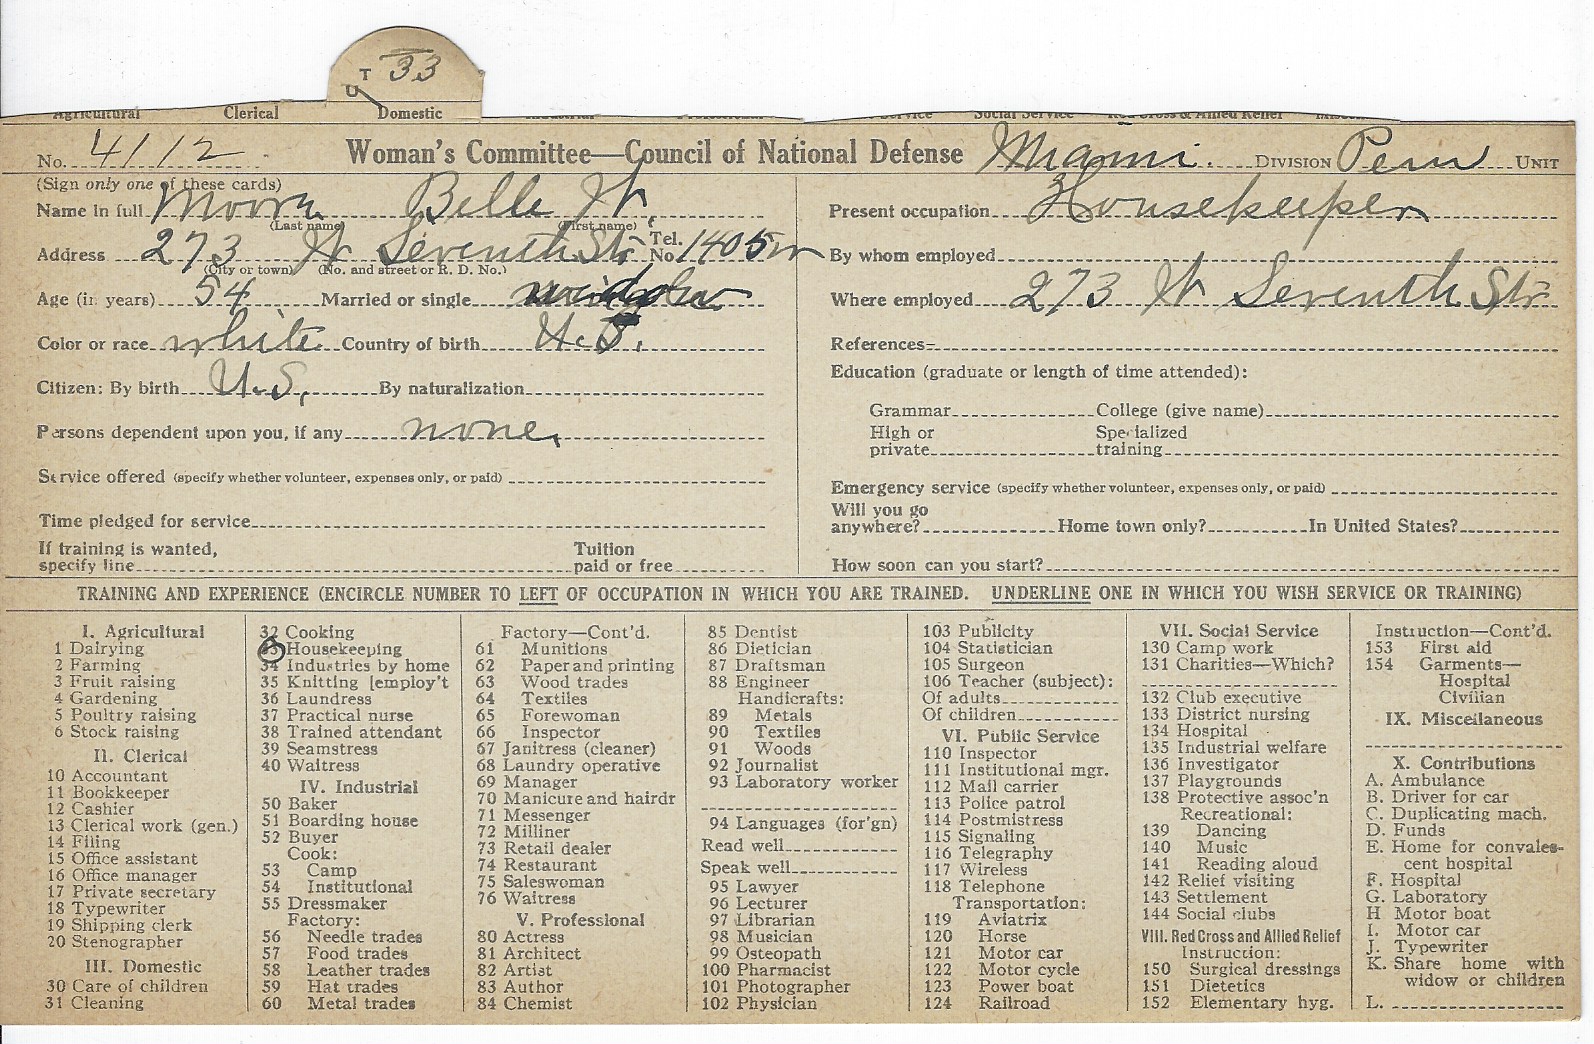 T 33
Agricultural Clerical Domestic Social Service Red Cross & Allied Relief
No. 4112 Woman's Committee—Council of National Defense Miami. DIVISION Peru UNIT
(Sign only one of these cards)
Name in full Moore Belle W. Present occupation Housekeeper
(Last name) (First name)
Address 273 W Seventh Str Tel. No. 1405w By whom employed
(City or town) (No. and street or R. D. No.)
Age (in years) 54 Married or single widow Where employed 273 W Seventh Str
Color or race white Country of birth U.S. References
Citizen: By birth U.S. By naturalization Education (graduate or length of time attended):
Grammar College (give name)
Persons dependent upon you, if any none. High or private Specialized training
Service offered (specify whether volunteer, expenses only, or paid) Emergency service (specify whether volunteer, expenses only, or paid)
Time pledged for service Will you go anywhere? Home town only? In United States?
If training is wanted, specify line Tuition paid or free How soon can you start?
TRAINING AND EXPERIENCE (ENCIRCLE NUMBER TO LEFT OF OCCUPATION IN WHICH YOU ARE TRAINED. UNDERLINE ONE IN WHICH YOU WISH SERVICE OR TRAINING)
I. Agricultural
1 Dairying
2 Farming
3 Fruit raising
4 Gardening
5 Poultry raising
6 Stock raising
II. Clerical
10 Accountant
11 Bookkeeper
12 Cashier
13 Clerical work (gen.)
14 Filing
15 Office assistant
16 Office manager
17 Private secretary
18 Typewriter
19 Shipping clerk
20 Stenographer
III. Domestic
30 Care of children
31 Cleaning
32 Cooking
33 Housekeeping
34 Industries by home
35 Knitting [employ't
36 Laundress
37 Practical nurse
38 Trained attendant
39 Seamstress
40 Waitress
IV. Industrial
50 Baker
51 Boarding house
52 Buyer
Cook:
53 Camp
54 Institutional
55 Dressmaker
Factory:
56 Needle trades
57 Food trades
58 Leather trades
59 Hat trades
60 Metal trades
Factory—Cont'd.
61 Munitions
62 Paper and printing
63 Wood trades
64 Textiles
65 Forewoman
66 Inspector
67 Janitress (cleaner)
68 Laundry operative
69 Manager
70 Manicure and hairdr
71 Messenger
72 Milliner
73 Retail dealer
74 Restaurant
75 Saleswoman
76 Waitress
V. Professional
80 Actress
81 Architect
82 Artist
83 Author
84 Chemist
85 Dentist
86 Dietician
87 Draftsman
88 Engineer
Handicrafts:
89 Metals
90 Textiles
91 Woods
92 Journalist
93 Laboratory worker
94 Languages (for'gn)
Read well
Speak well
95 Lawyer
96 Lecturer
97 Librarian
98 Musician
99 Osteopath
100 Pharmacist
101 Photographer
102 Physician
103 Publicity
104 Statistician
105 Surgeon
106 Teacher (subject):
Of adults
Of children
VI. Public Service
110 Inspector
111 Institutional mgr.
112 Mail carrier
113 Police patrol
114 Postmistress
115 Signaling
116 Telegraphy
117 Wireless
118 Telephone
Transportation:
119 Aviatrix
120 Horse
121 Motor car
122 Motor cycle
123 Power boat
124 Railroad
VII. Social Service
130 Camp work
131 Charities—Which?
132 Club executive
133 District nursing
134 Hospital
135 Industrial welfare
136 Investigator
137 Playgrounds
138 Protective assoc'n
Recreational:
139 Dancing
140 Music
141 Reading aloud
142 Relief visiting
143 Settlement
144 Social clubs
VIII. Red Cross and Allied Relief
Instruction:
150 Surgical dressings
151 Dietetics
152 Elementary hyg.
Instruction—Cont'd.
153 First aid
154 Garments—
Hospital
Civilian
IX. Miscellaneous
X. Contributions
A. Ambulance
B. Driver for car
C. Duplicating mach.
D. Funds
E. Home for convales-
cent hospital
F. Hospital
G. Laboratory
H Motor boat
I. Motor car
J. Typewriter
K. Share home with
widow or children
L.